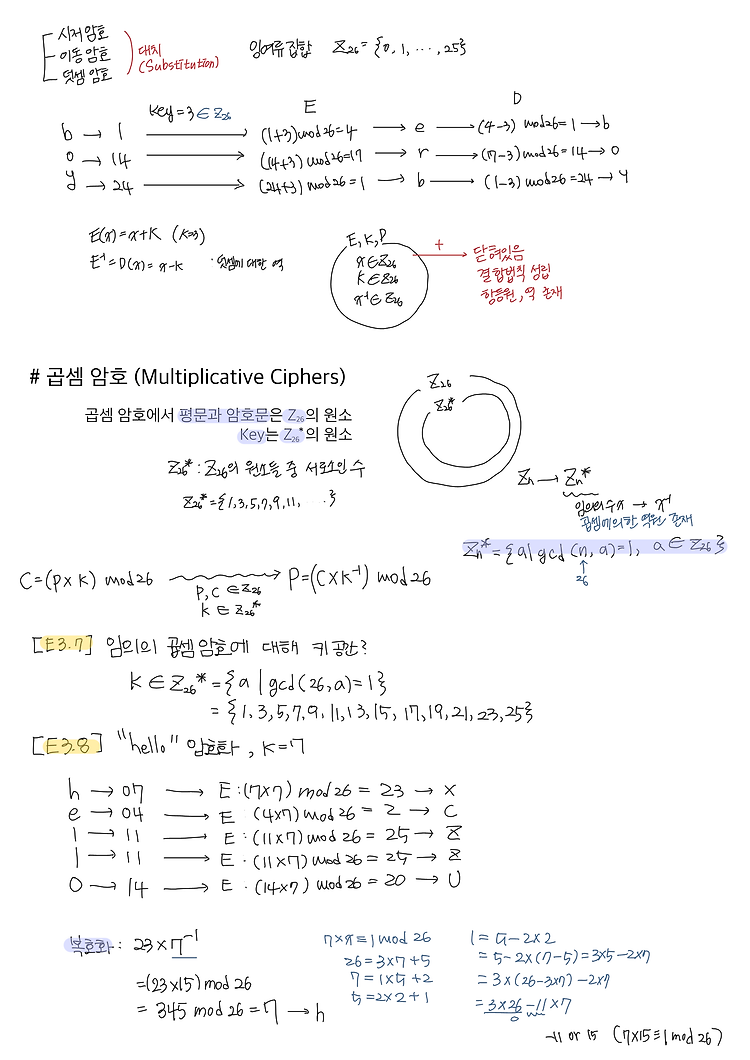 시저 암호
이동 암호
덧셈 암호
대치
(Substitution)
잉여류 집합 Z₂₆ = {0, 1, ..., 25}
key=3 ∈ Z₂₆ E D
b → 1 → (1+3)mod26=4 → e → (4-3) mod26= 1 → b
o → 14 → (14+3) mod26=17 → r → (17-3) mod26= 14 → o
y → 24 → (24+3) mod26 = 1 → b → (1-3) mod26 = 24 → y
E(x) = x+K (K=3)
E⁻¹ = D(x) = x-k · 덧셈에 대한 역
E, K, D
x∈Z₂₆
K∈Z₂₆
x⁻¹∈Z₂₆
+
닫혀있음
결합법칙 성립
항등원, 역 존재
# 곱셈 암호 (Multiplicative Ciphers)
곱셈 암호에서 평문과 암호문은 Z₂₆의 원소
Key는 Z₂₆*의 원소
Z₂₆* : Z₂₆의 원소들 중 서로소인 수
Z₂₆* = {1,3,5,7,9,11, ......}
Z₂₆
Z₂₆*
Zn → Zn*
임의의 수 x → x⁻¹
곱셈에 의한 역원 존재
Zn* = {a | gcd (n, a)=1, a ∈ Z₂₆}
↑
26
C=(P×K) mod26 → P=(C×K⁻¹) mod 26
P, C ∈ Z₂₆
K ∈ Z₂₆*
[E3.7] 임의의 곱셈 암호에 대해 키 공간?
K ∈ Z₂₆* = {a | gcd(26,a)=1}
= {1, 3, 5, 7, 9, 11, 13, 15, 17, 19, 21, 23, 25}
[E3.8] "hello" 암호화, K=7
h → 07 → E : (7×7) mod26 = 23 → X
e → 04 → E : (4×7) mod26 = 2 → C
l → 11 → E : (11×7) mod26 = 25 → Z
l → 11 → E : (11×7) mod26 = 25 → Z
o → 14 → E : (14×7) mod26 = 20 → U
복호화 : 23 × 7⁻¹
=(23×15) mod 26
= 345 mod 26 = 7 → h
7×x ≡ 1 mod 26
26 = 3×7+5
7 = 1×5+2
5 = 2×2+1
1 = 5-2×2
= 5-2×(7-5) = 3×5-2×7
= 3×(26-3×7)-2×7
= 3×26 -11×7
0
-11 or 15 (7×15 ≡ 1 mod 26)